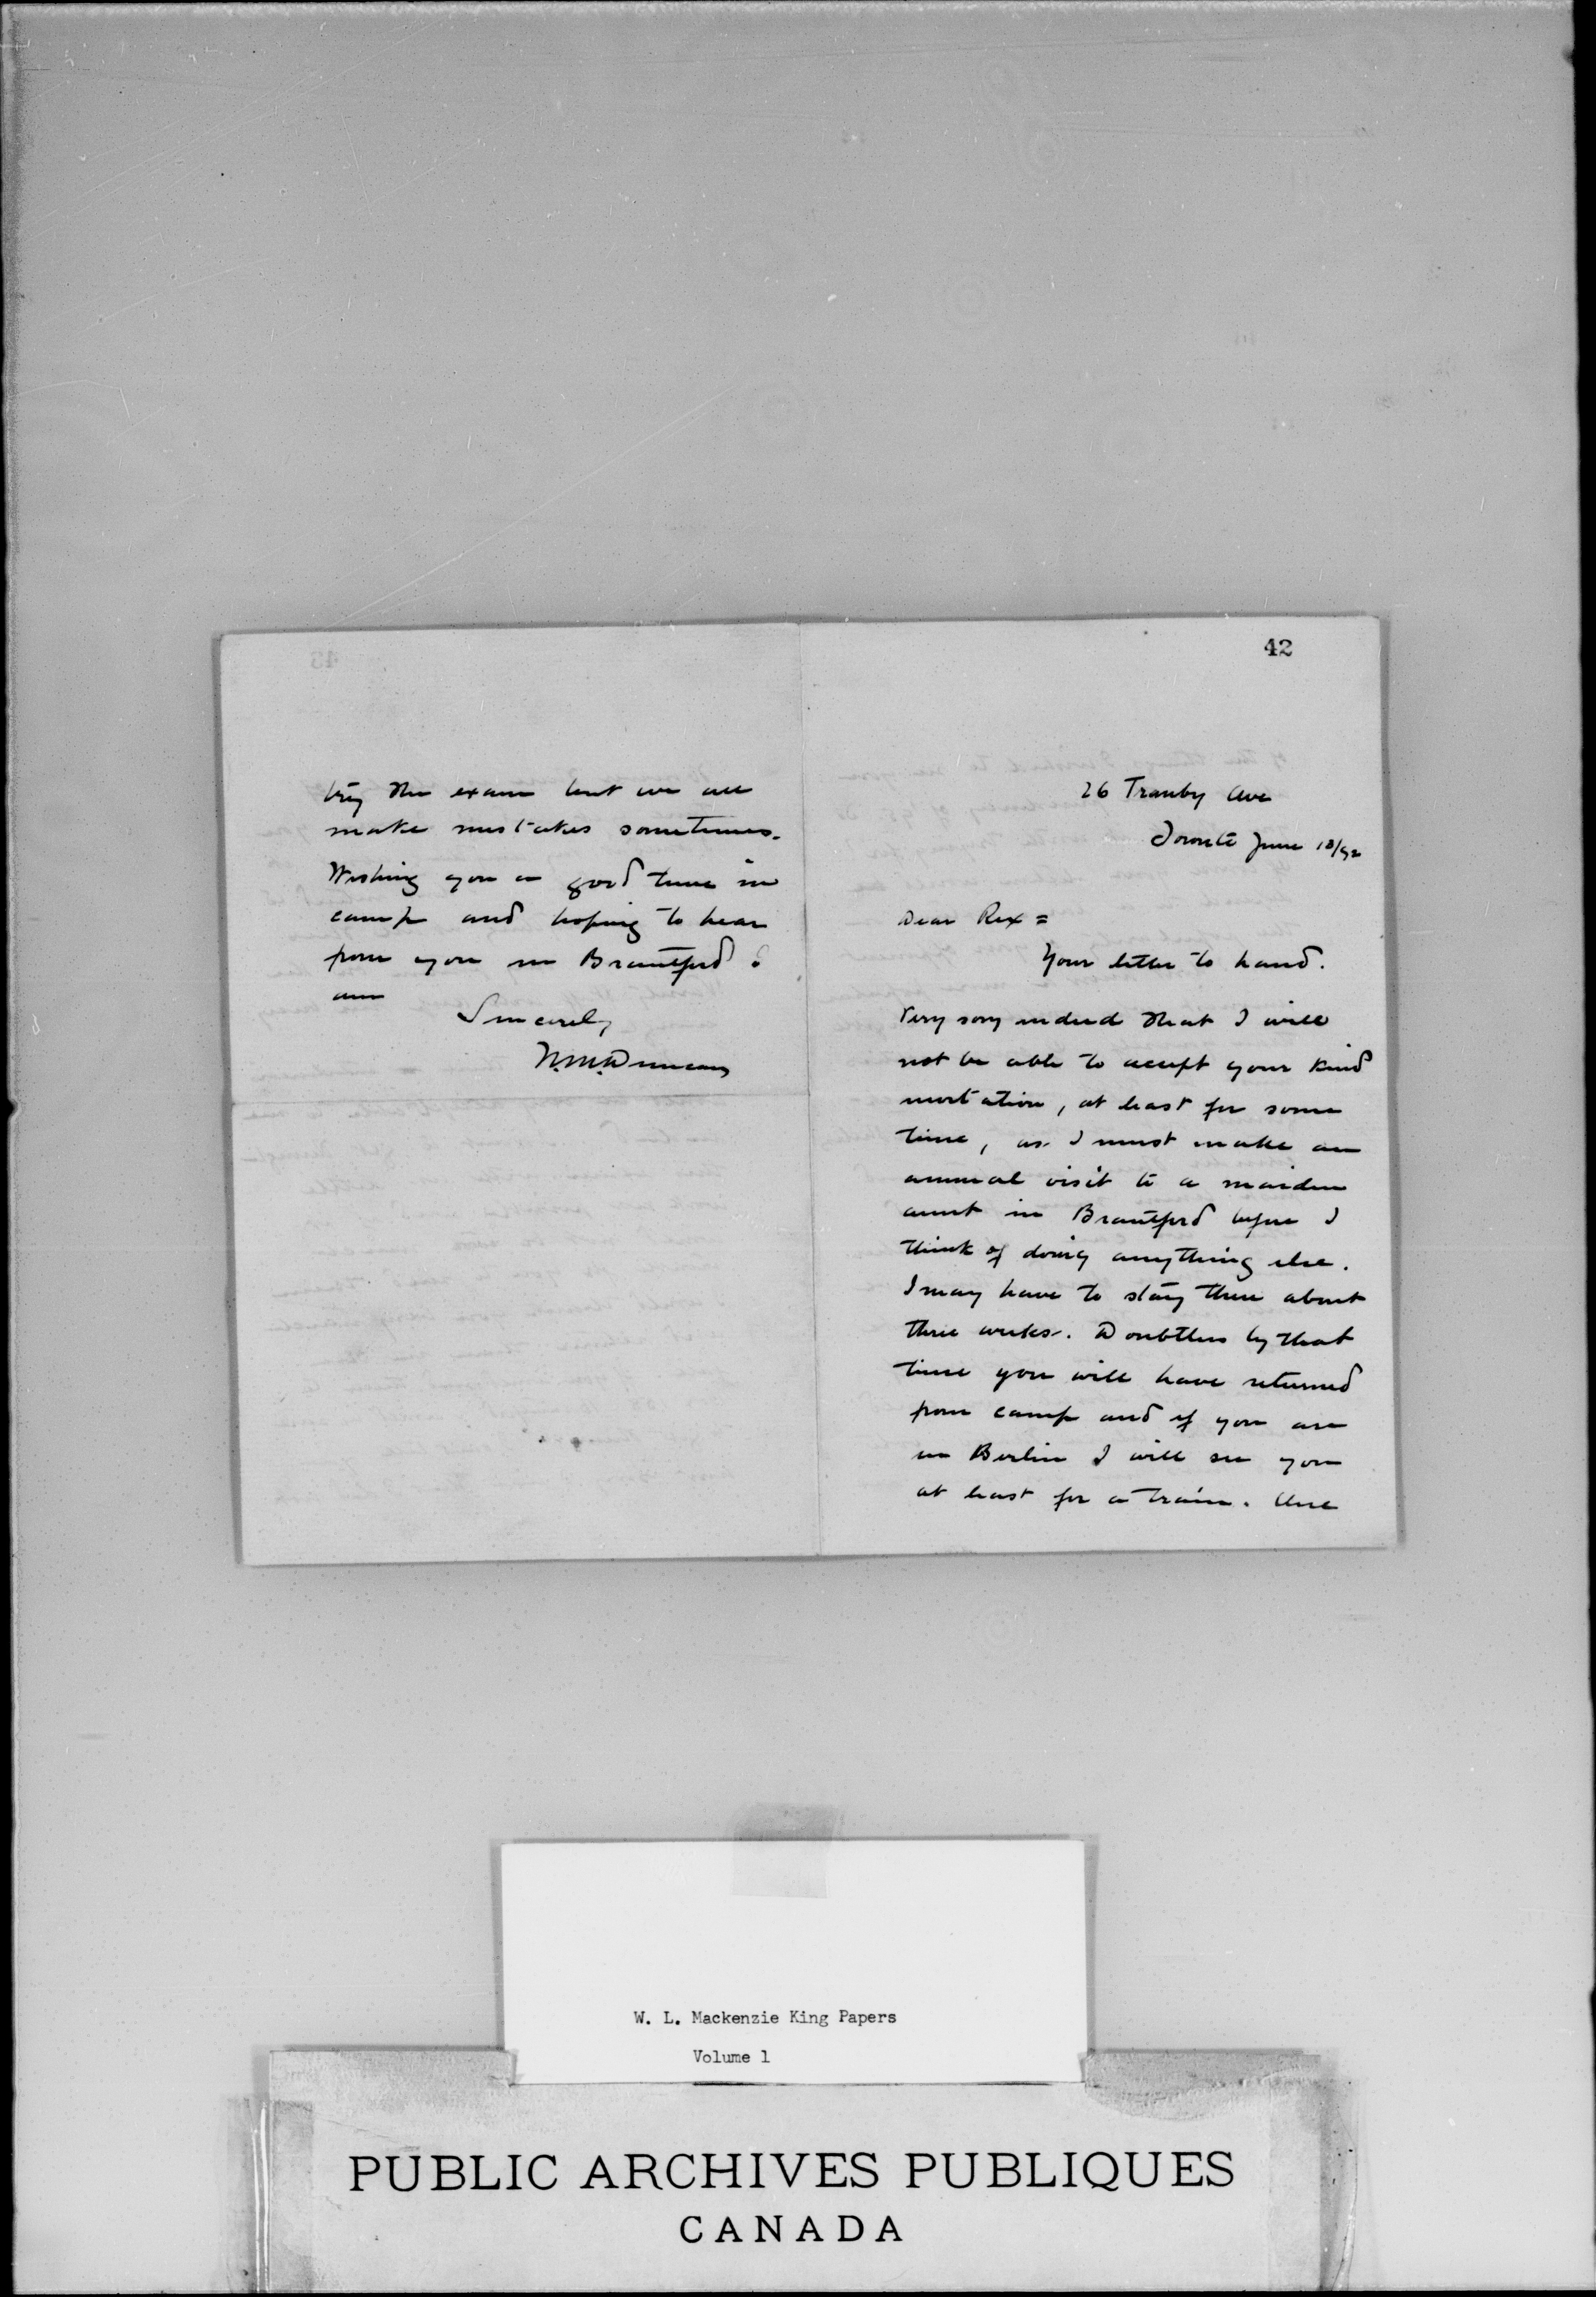 42
26 Tranby Ave
Toronto June 18/92
Dear Rex =
Your letter to hand.
Very sorry indeed that I will
not be able to accept your kind
invitation, at least for some
time, as I must make an
annual visit to a maiden
aunt in Brantford before I
think of doing anything else.
I may have to stay there about
three weeks. Doubtless by that
time you will have returned
from camp and if you are
in Berlin I will see you
at least for a train. One
try the exam but we all
make mistakes sometimes.
Wishing you a good time in
camp and hoping to hear
from you in Brantford I
am
Sincerely
W.M.Duncan
W. L. Mackenzie King Papers
Volume 1
PUBLIC ARCHIVES PUBLIQUES
CANADA